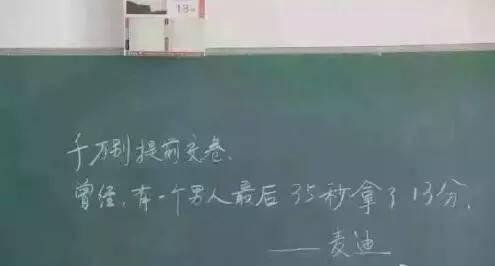 18
千万别提前交卷.
曾经,有一个男人最后35秒拿了13分.
——麦迪